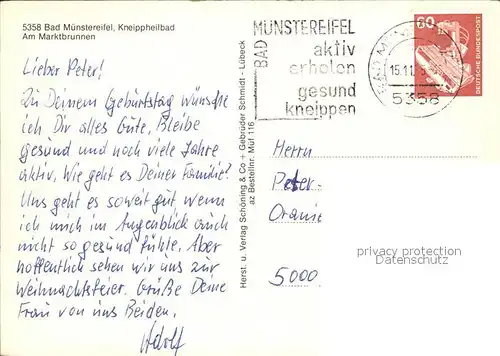 5358 Bad Münstereifel, Kneippheilbad
Am Marktbrunnen
Lieber Peter!
Zu Deinem Geburtstag wünsche
ich Dir alles Gute. Bleibe
gesund und noch viele Jahre
aktiv. Wie geht es Deiner Familie?
Uns geht es soweit gut, wenn
ich mich im Augenblick auch
nicht so gesund fühle. Aber
hoffentlich sehen wir uns zur
Weihnachtsfeier. Grüße Deine
Frau von uns Beiden.
Adolf
Herst. u. Verlag Schöning & Co + Gebrüder Schmidt - Lübeck
az Bestellnr. Mün 116
BAD
MÜNSTEREIFEL
aktiv
erholen
gesund
kneippen
15.11
5358
60
DEUTSCHE BUNDESPOST
Herrn
Peter
Oranie
5000
privacy protection
Datenschutz